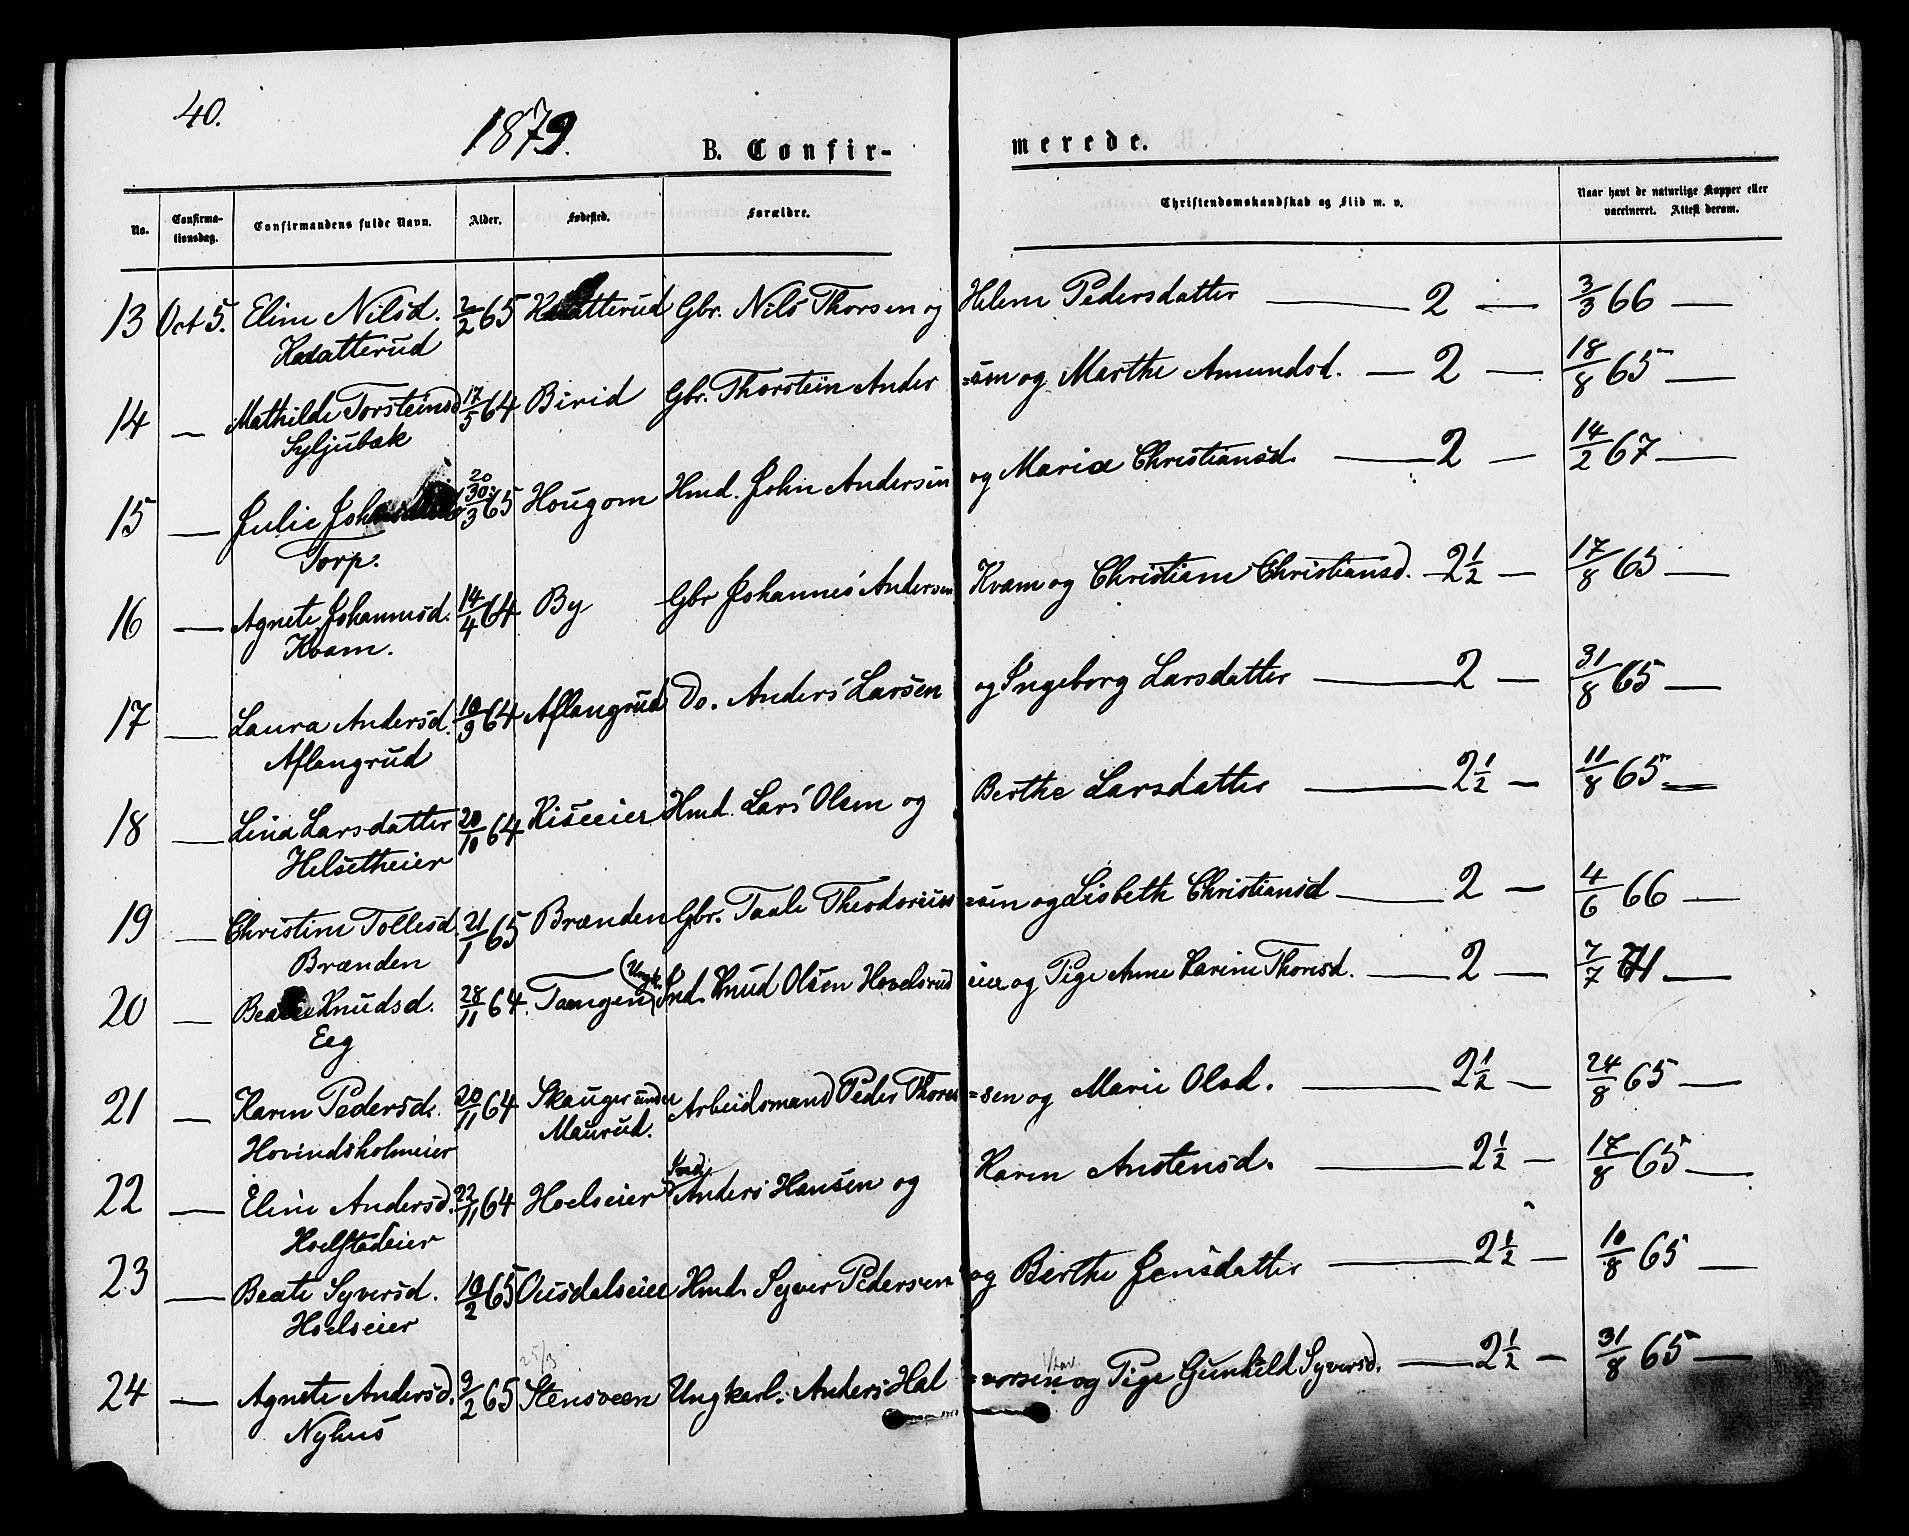 40.
1879.
B. Confir-
merede.
No.
Confirma-
tionsdag.
Confirmandens fulde Navn.
Alder.
Fødested.
Forældre.
Christendomskundskab og Flid m. v.
Naar havt de naturlige Kopper eller
vaccineret. Attest derom.
13 Oct 5. Eline Nilsd. 2/2 65 Gbr. Nils Thorsen og Helene Pedersdatter — 2 — 3/3 66 —
14 — Mathilde Torsteinsd 17/5 64 Birid Gbr. Thorstein Ander =sen og Marthe Amundsd. — 2 — 18/8 65 —
Syljubæk
15 — Julie 20 30/3 65 Hougom Hmd. John Andersen og Maria Christiansd. — 2 — 14/2 67 —
Torp.
16 — Agnete Johannesd. 14/4 64 By Gbr Johannes Andersen Kvam og Christiane Christiansd. — 2 1/2 — 17/8 65 —
Kvam.
17 — Laura Andersd. 10/9 64 Aflangrud Do. Anders Larsen og Ingeborg Larsdatter — 2 — 31/8 65 —
Aflangrud
18 — Lina Larsdatter 20/10 64 Kiseeier Hmd. Lars Olsen og Berthe Larsdatter — 2 1/2 — 11/8 65 —
Helsetheier
19 — Christine Tollesd. 21/1 65 Brænden Gbr. Taale Theodorius =sen og Lisbeth Christiansd — 2 — 4/6 66 —
Brænden
20 — Knudsd. 28/11 64. Tangen (Ungk. Ind. Knud Olsen Hovelsrud eier og Pige Anne Karine Thoresd. — 2 — 7/7 71 —
Eeg
21 — Karen Pedersd. 20/11 64 Skauger under Arbeidsmand Peder Thores =sen og Marie Olsd. — 2 1/2 — 24/8 65 —
Hovindsholmeier Maurud.
22 — Eline Andersd. 22/11 64 Hoelseier Ind. Anders Hansen og Karen Anstensd. — 2 1/2 — 17/8 65 —
Hoelstadeier
23 — Beate Syversd. 10/2 65 Ousdalseier Hmd. Syver Pedersen og Berthe Jensdatter — 2 1/2 — 10/8 65 —
Hoelseier
25/3
24 — Agnete Andersd. 9/2 65 Stensveen Ungkarl. Anders Hal =vorsen og Pige Gunhild Syversd. — 2 1/2 — 31/8 65 —
Nyhus